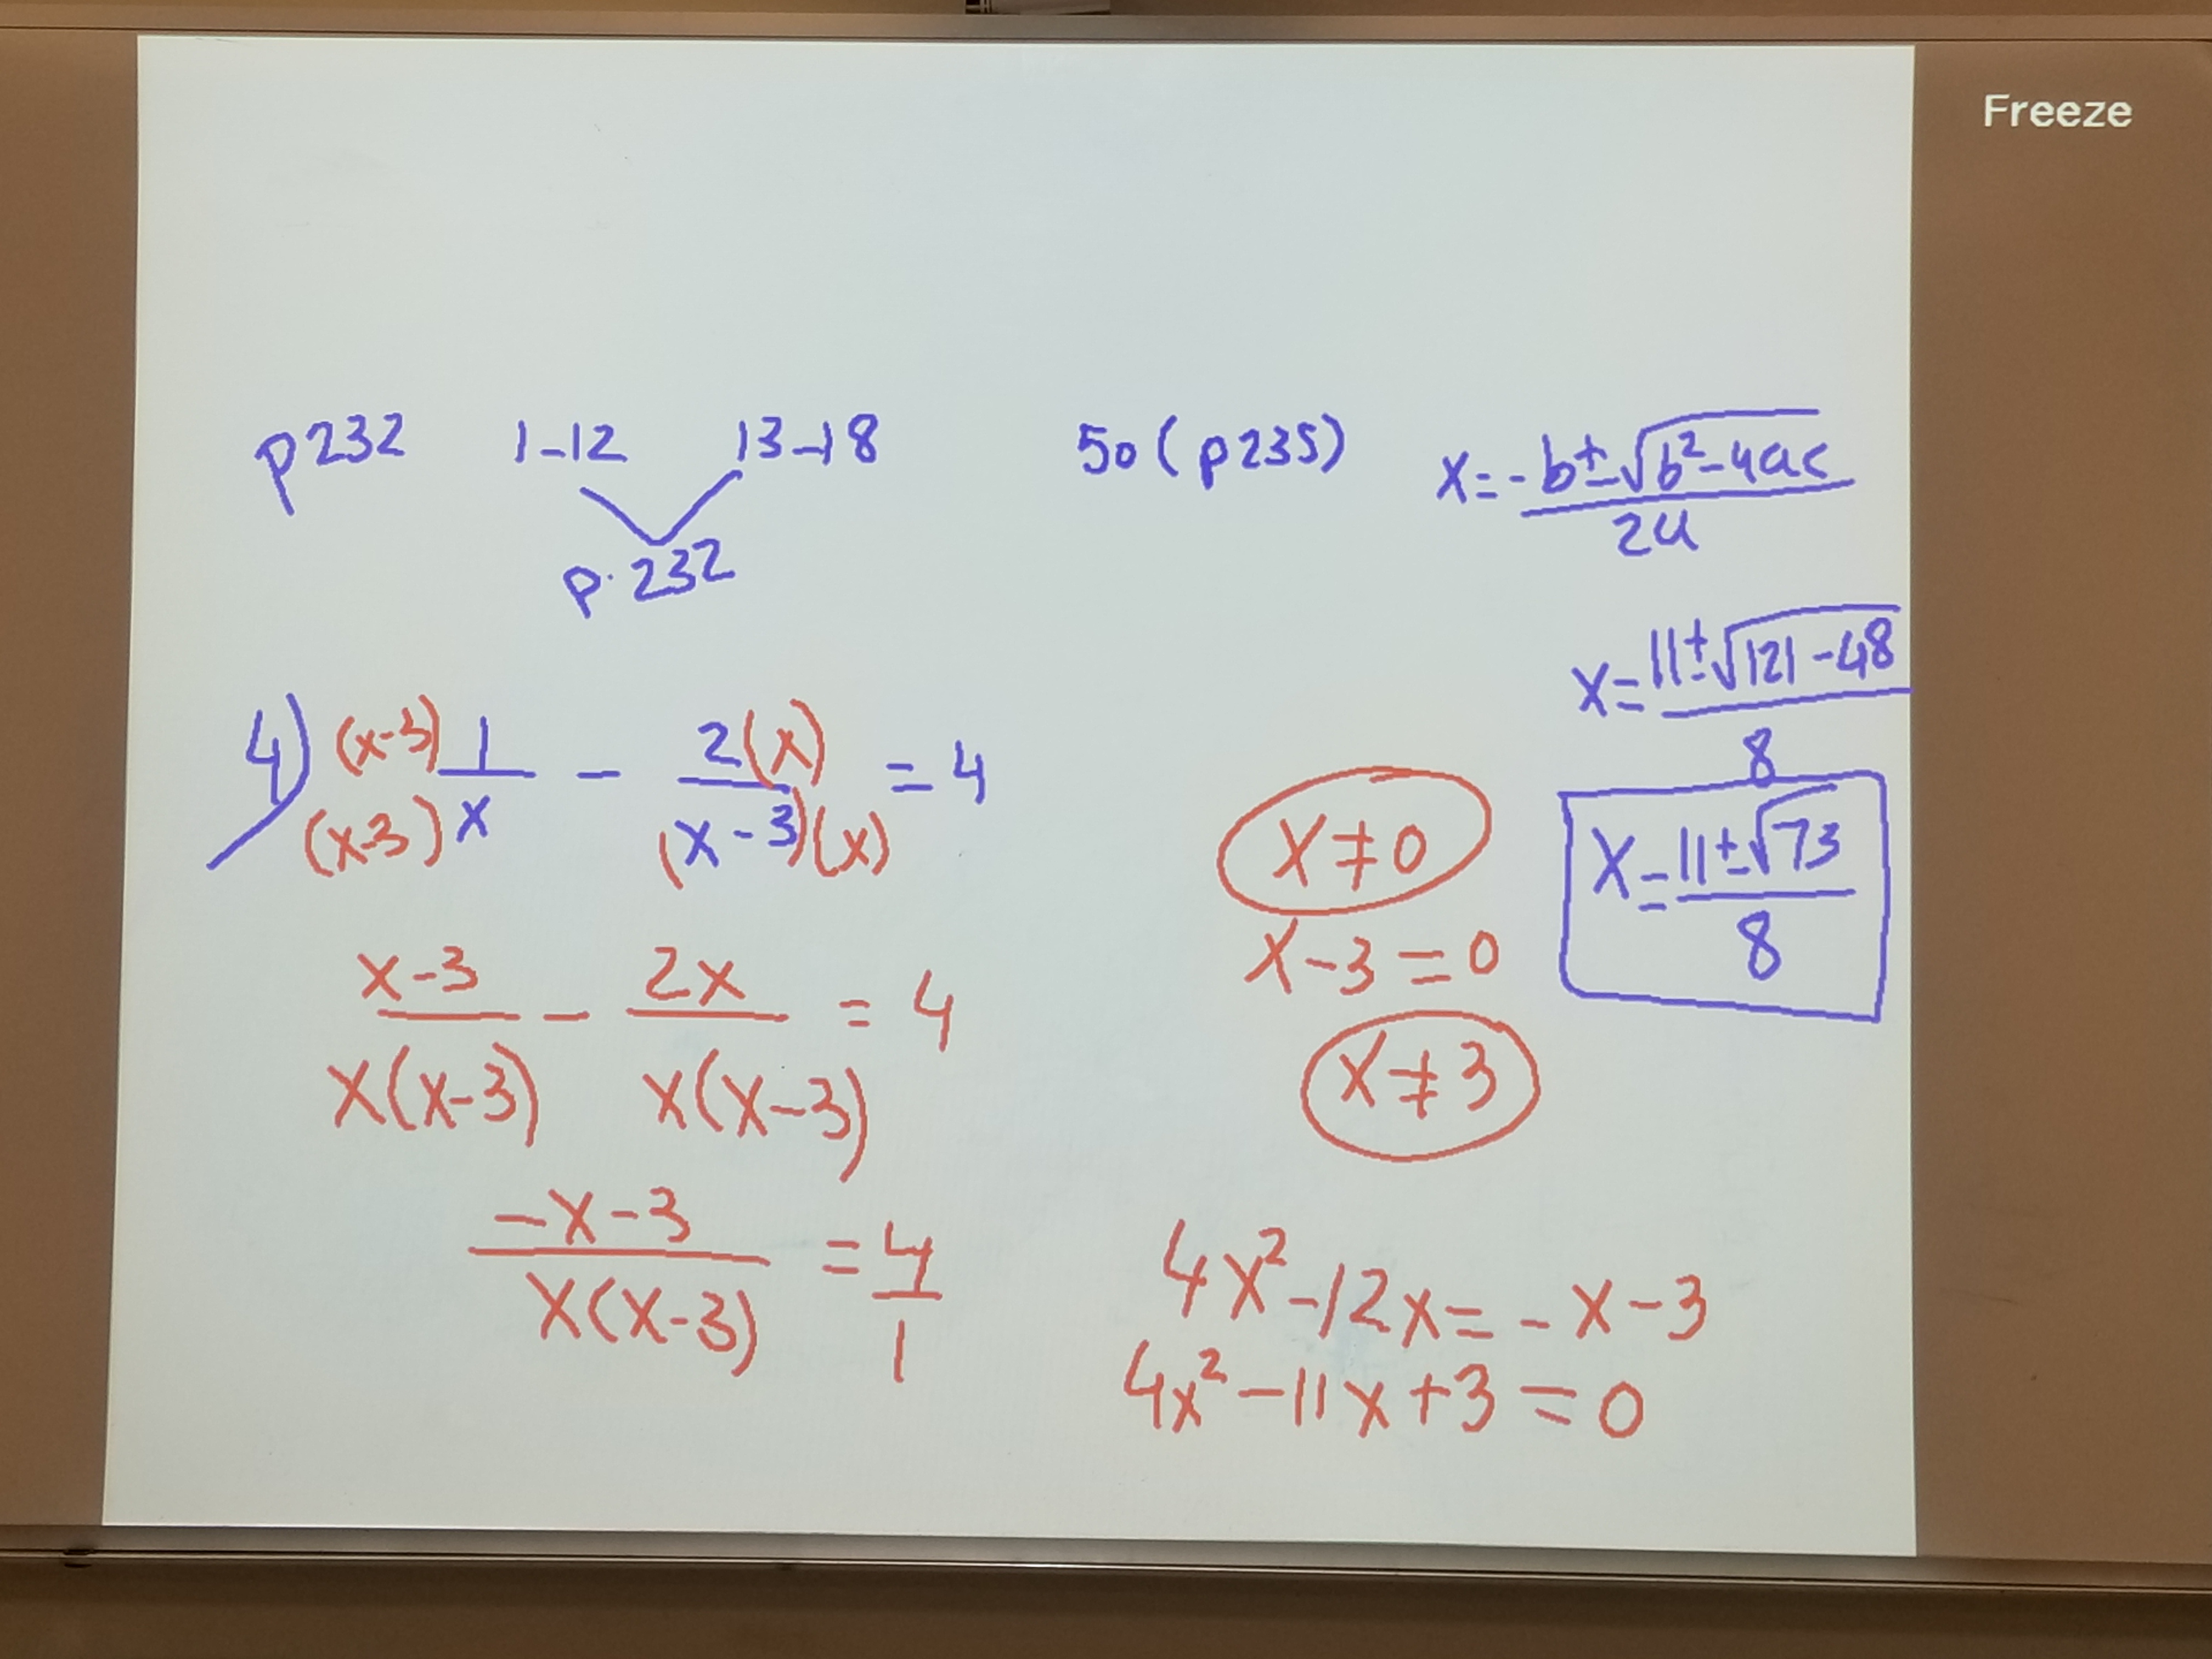 Freeze
p232 1-12 13-18 50 (p235)
p. 232
x = -b ± √(b² - 4ac) / 2a
x = 11 ± √(121 - 48) / 8
x = 11 ± √73 / 8
4) (x-3) 1 / (x-3) x - 2(x) / (x-3)(x) = 4
x-3 / x(x-3) - 2x / x(x-3) = 4
-x-3 / x(x-3) = 4 / 1
x ≠ 0
x-3 = 0
x ≠ 3
4x² - 12x = -x-3
4x² - 11x + 3 = 0